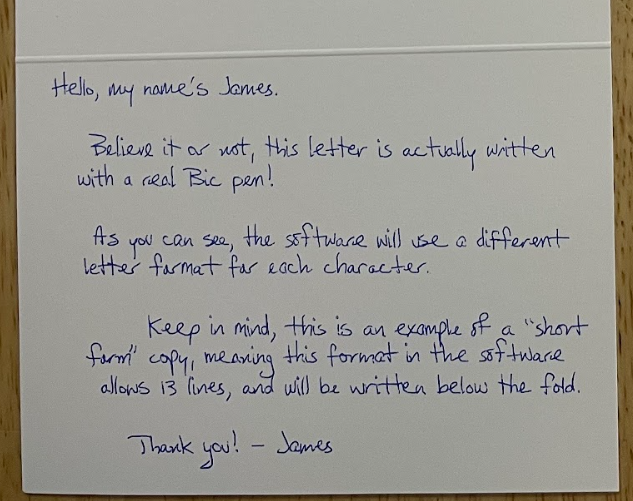 Hello, my name's James.
Believe it or not, this letter is actually written
with a real Bic pen!
As you can see, the software will use a different
letter format for each character.
Keep in mind, this is an example of a "short
form" copy, meaning this format in the software
allows 13 lines, and will be written below the fold.
Thank you! - James